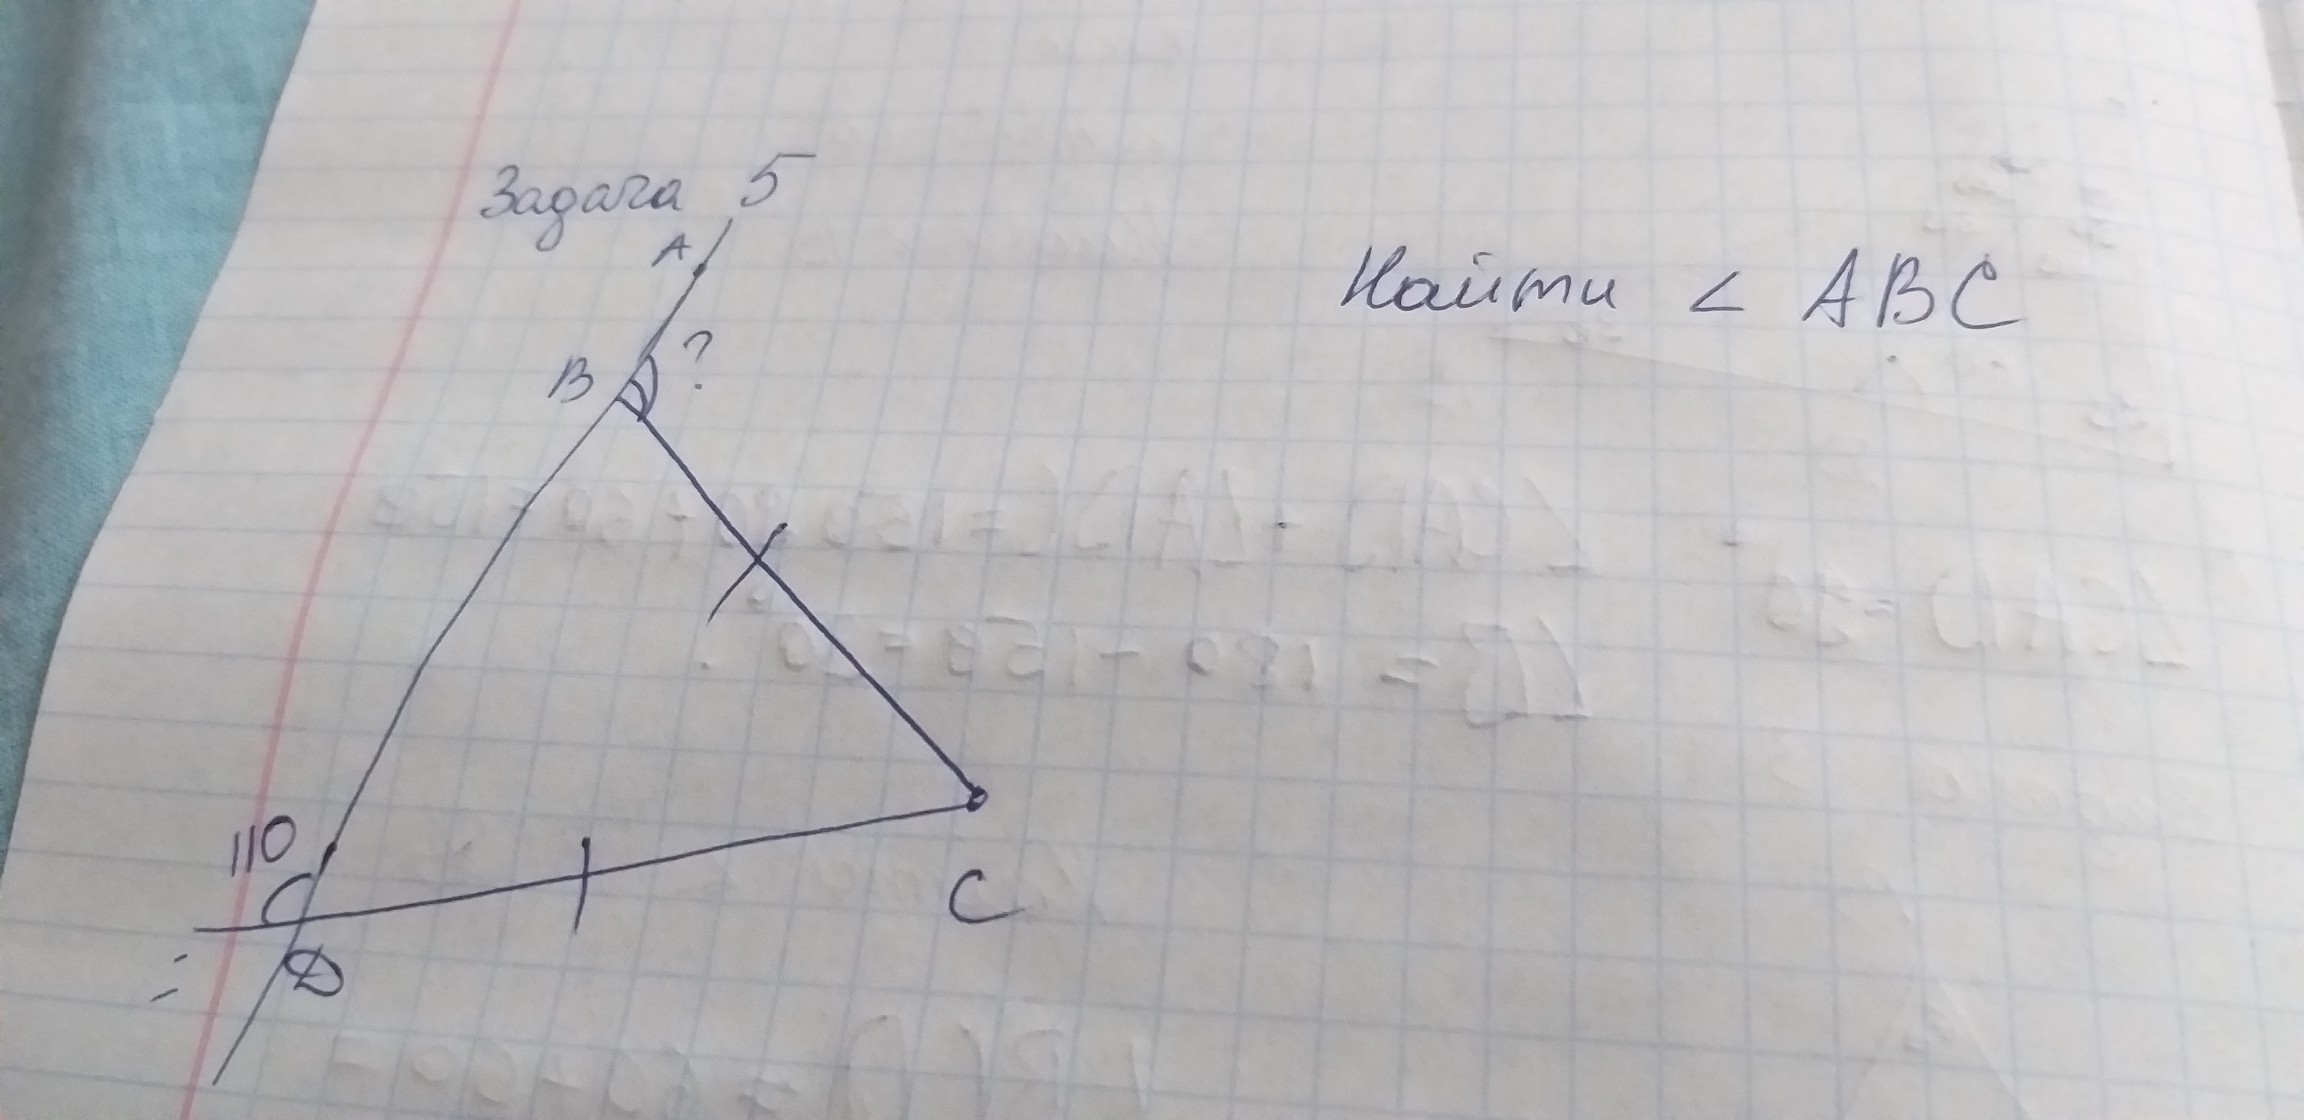 Задача 5
A
Найти < ABC
B
?
110
C
D